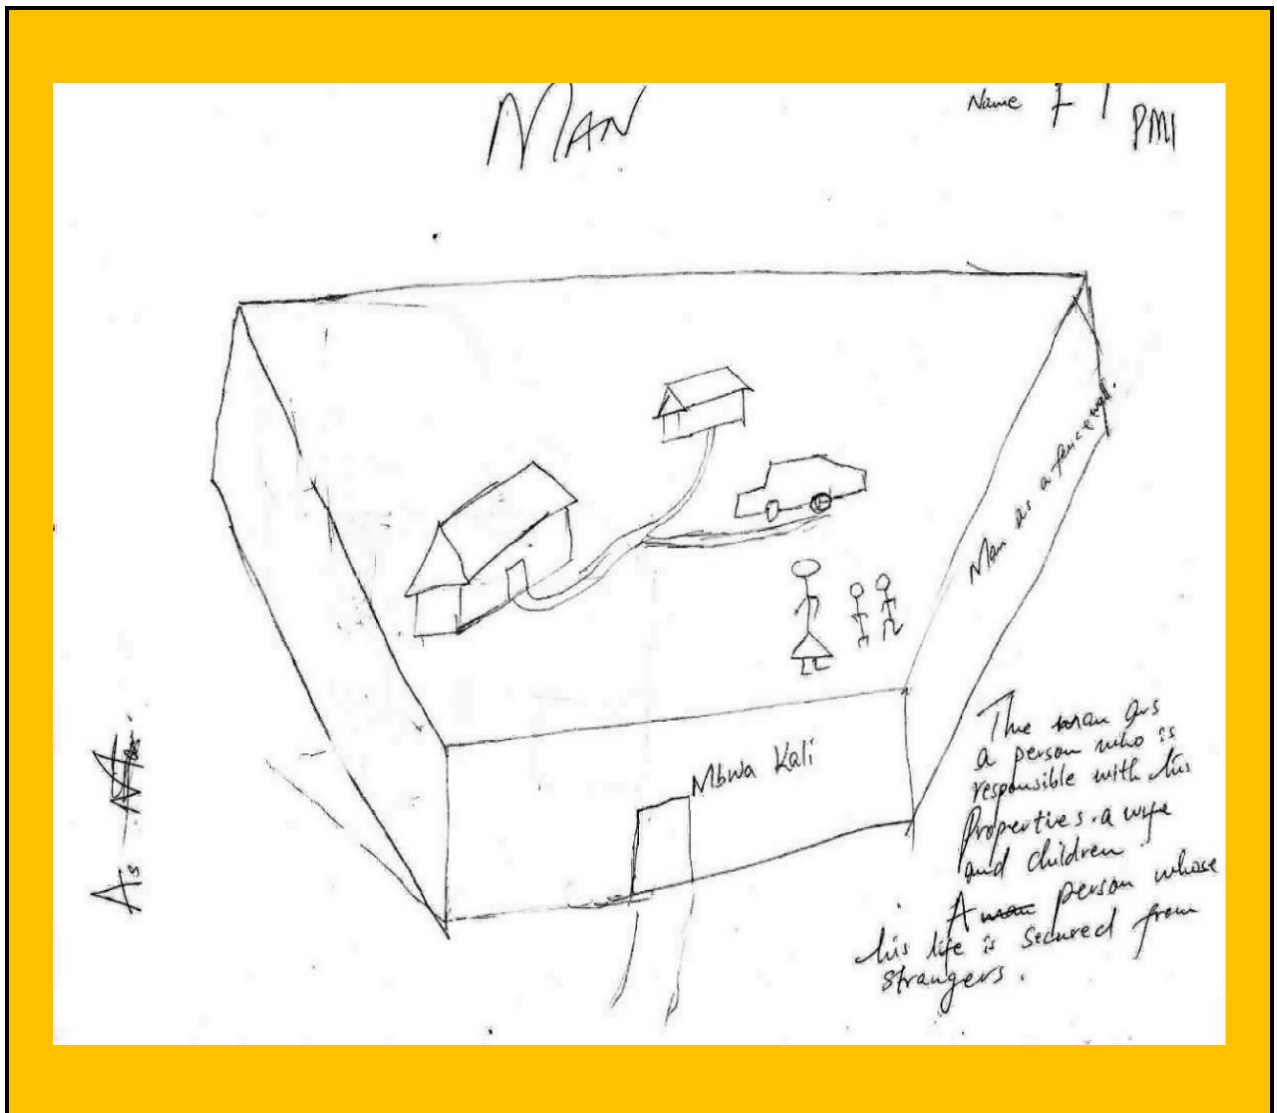 MAN
Name F 1
PM1
Man as a fence wall.
Mbwa Kali
As
The man as
a person who is
responsible with his
Properties. a wife
and children.
A man person whose
his life is secured from
strangers.